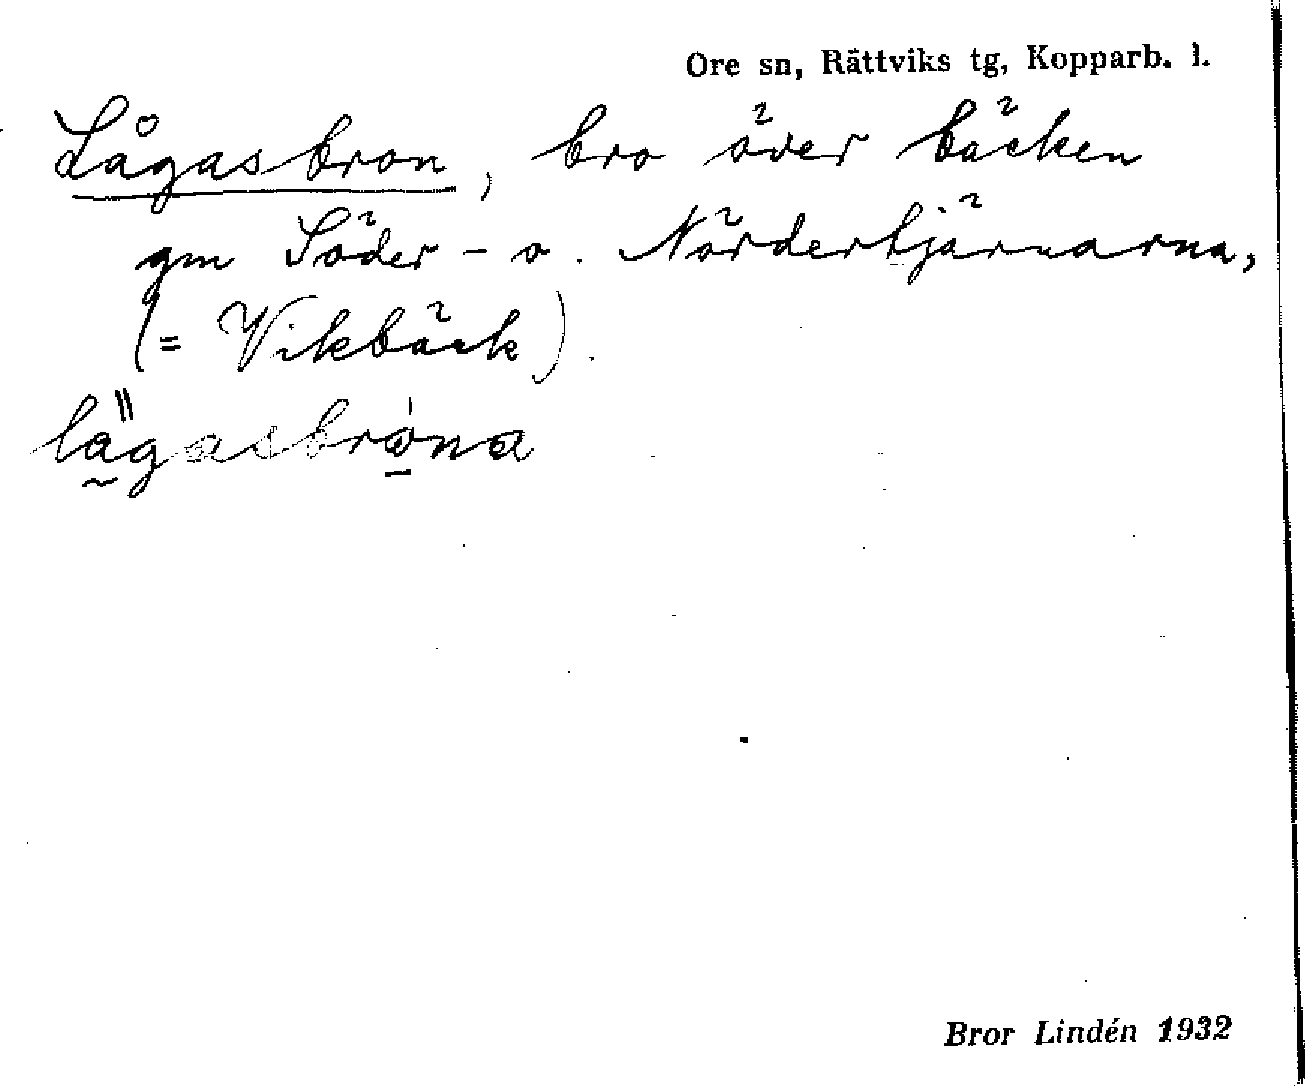 Ore sn, Rättviks tg, Kopparb. l.
Lågasbron, bro över bäcken
gm Söder- o. Nördertjärnarna,
(= Vikbäck).
lägasbróna
Bror Lindén 1932